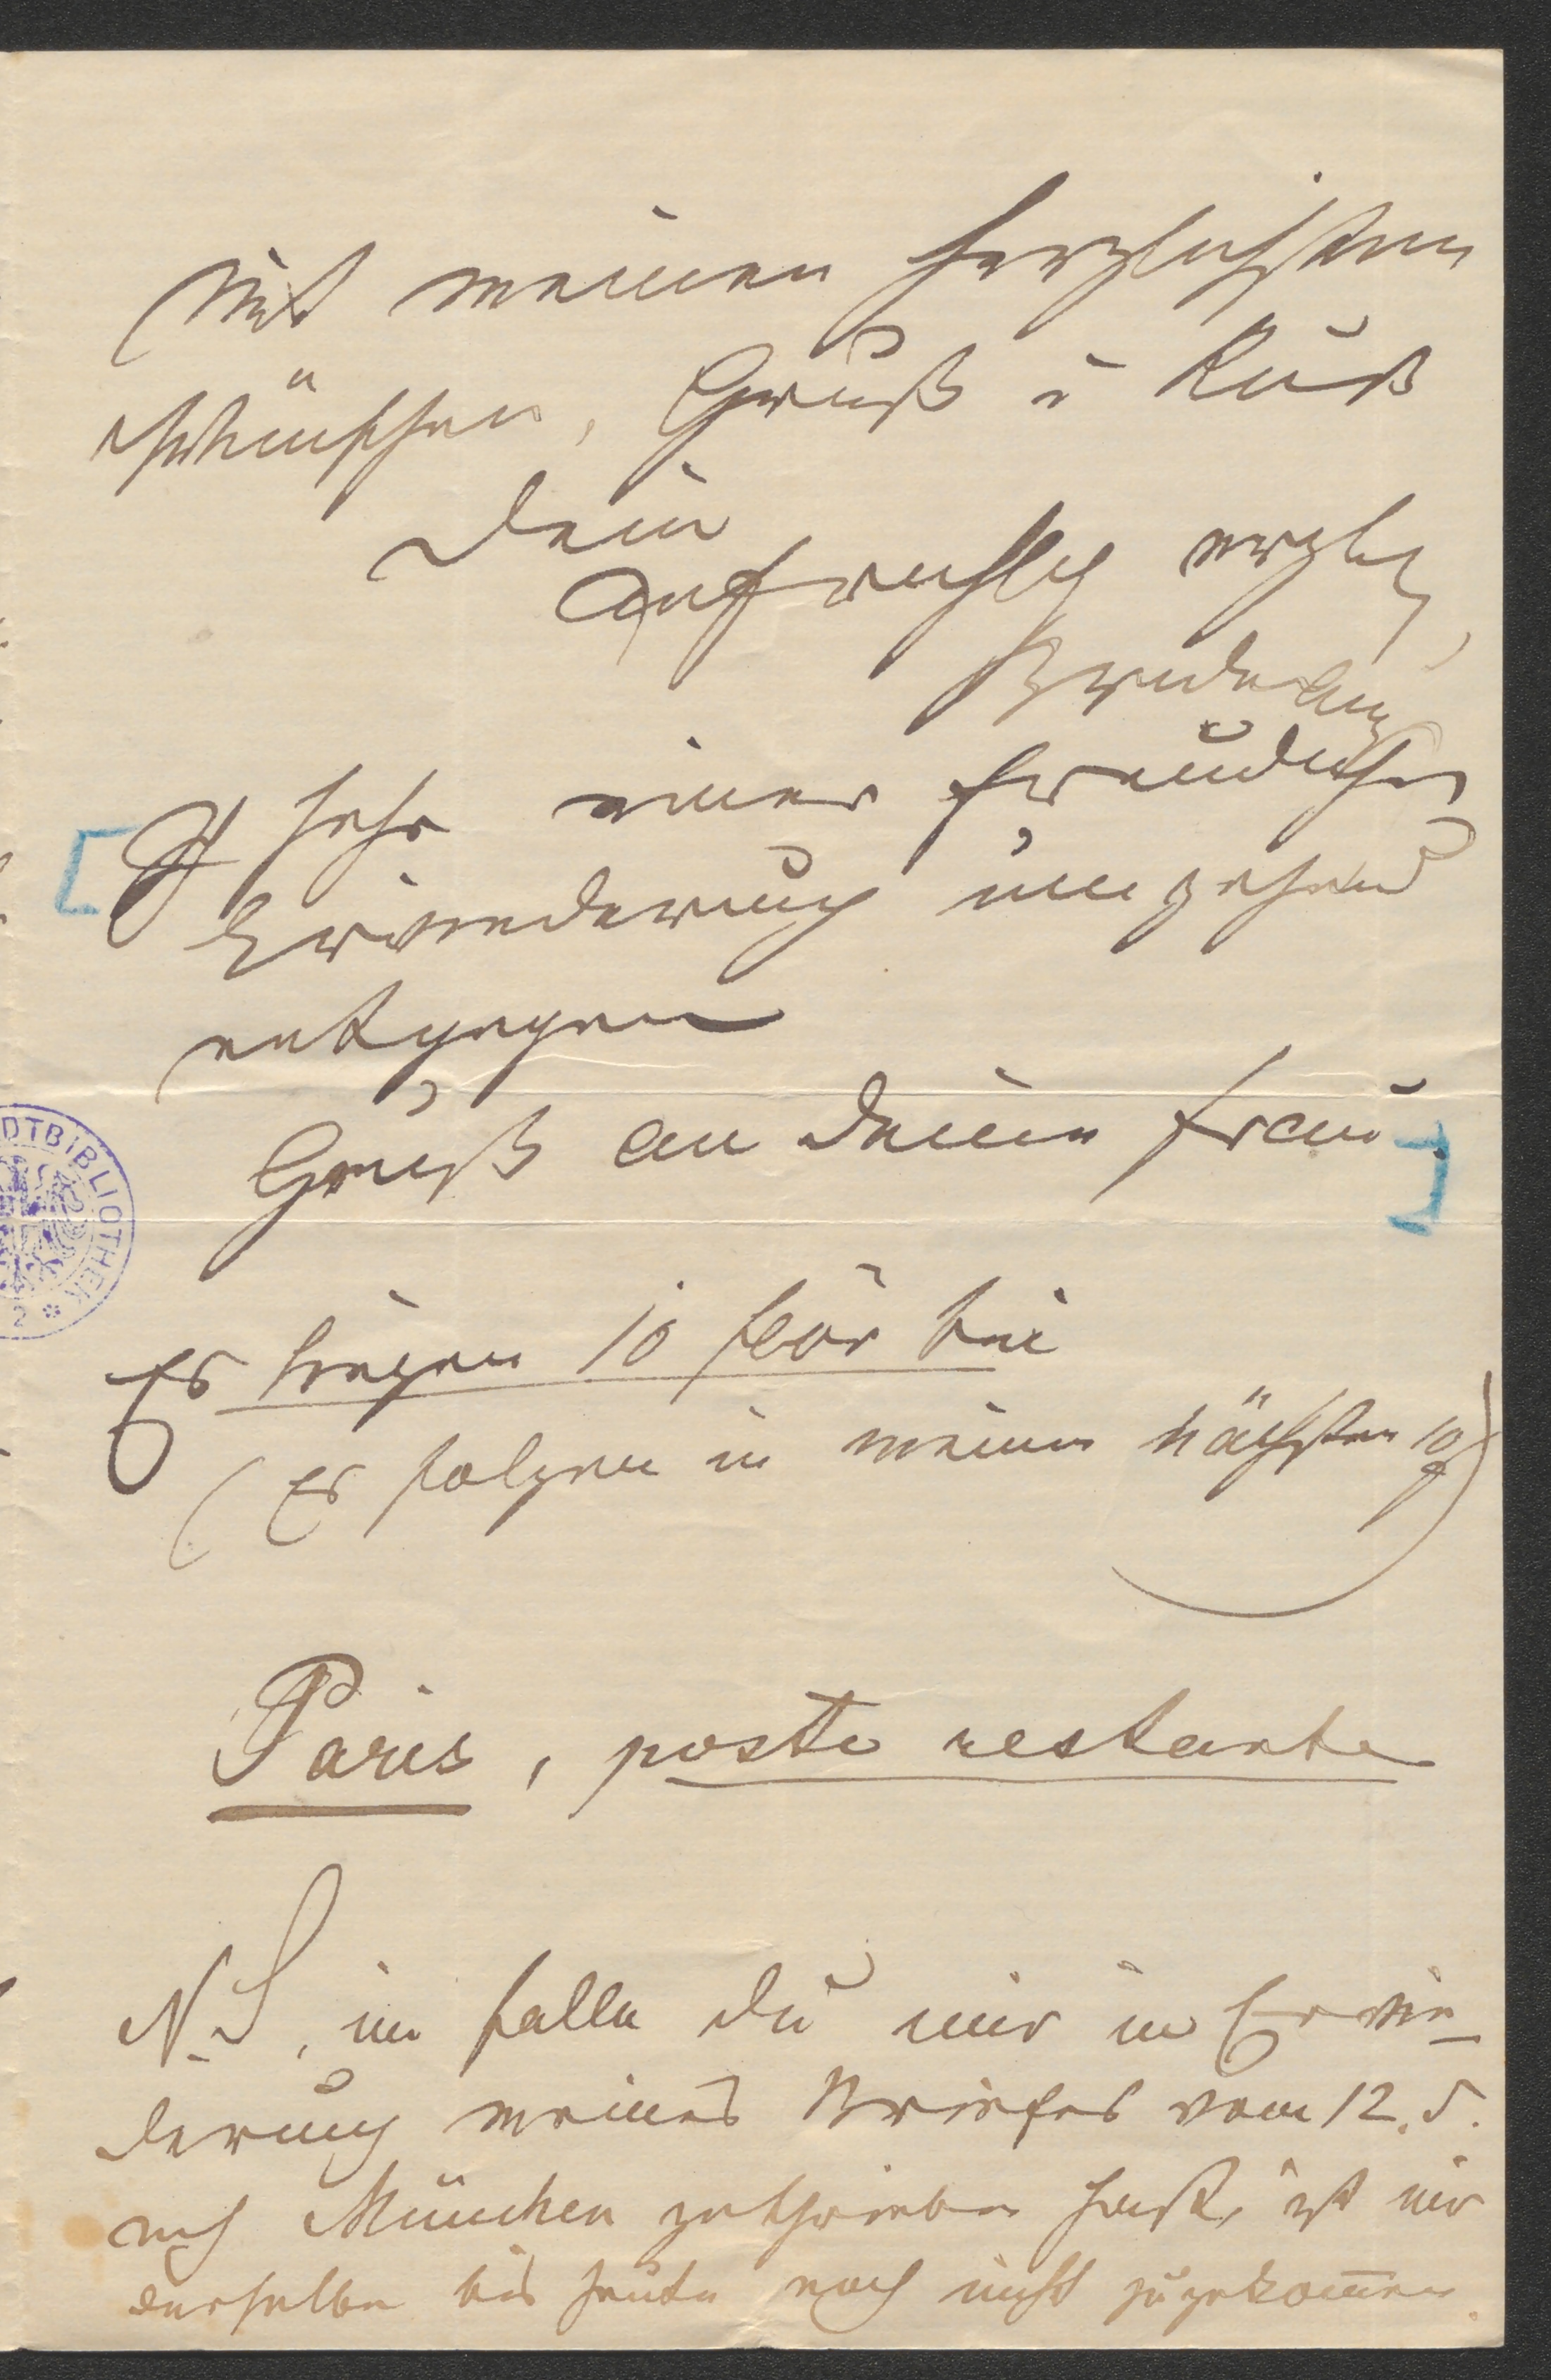 Mit meinen herzlichsten
Wünschen, Gruß u Kuß
Dein
aufrichtig ergbn
Bruder
Ich sehe einer freundlichen
Erwiederung umgehend
entgegen
Gruß an Deine Frau
Es liegen 10 bei
(Es folgen in meinem nächsten 10
Paris, poste restante
N.S, im Falle Du mir in Erwie-
derung meines Briefes vom 12.5.
nach München geschrieben hast, ist mir
derselbe bis heute noch nicht zugekom̅en.
DTBIBLIOTHEK
2